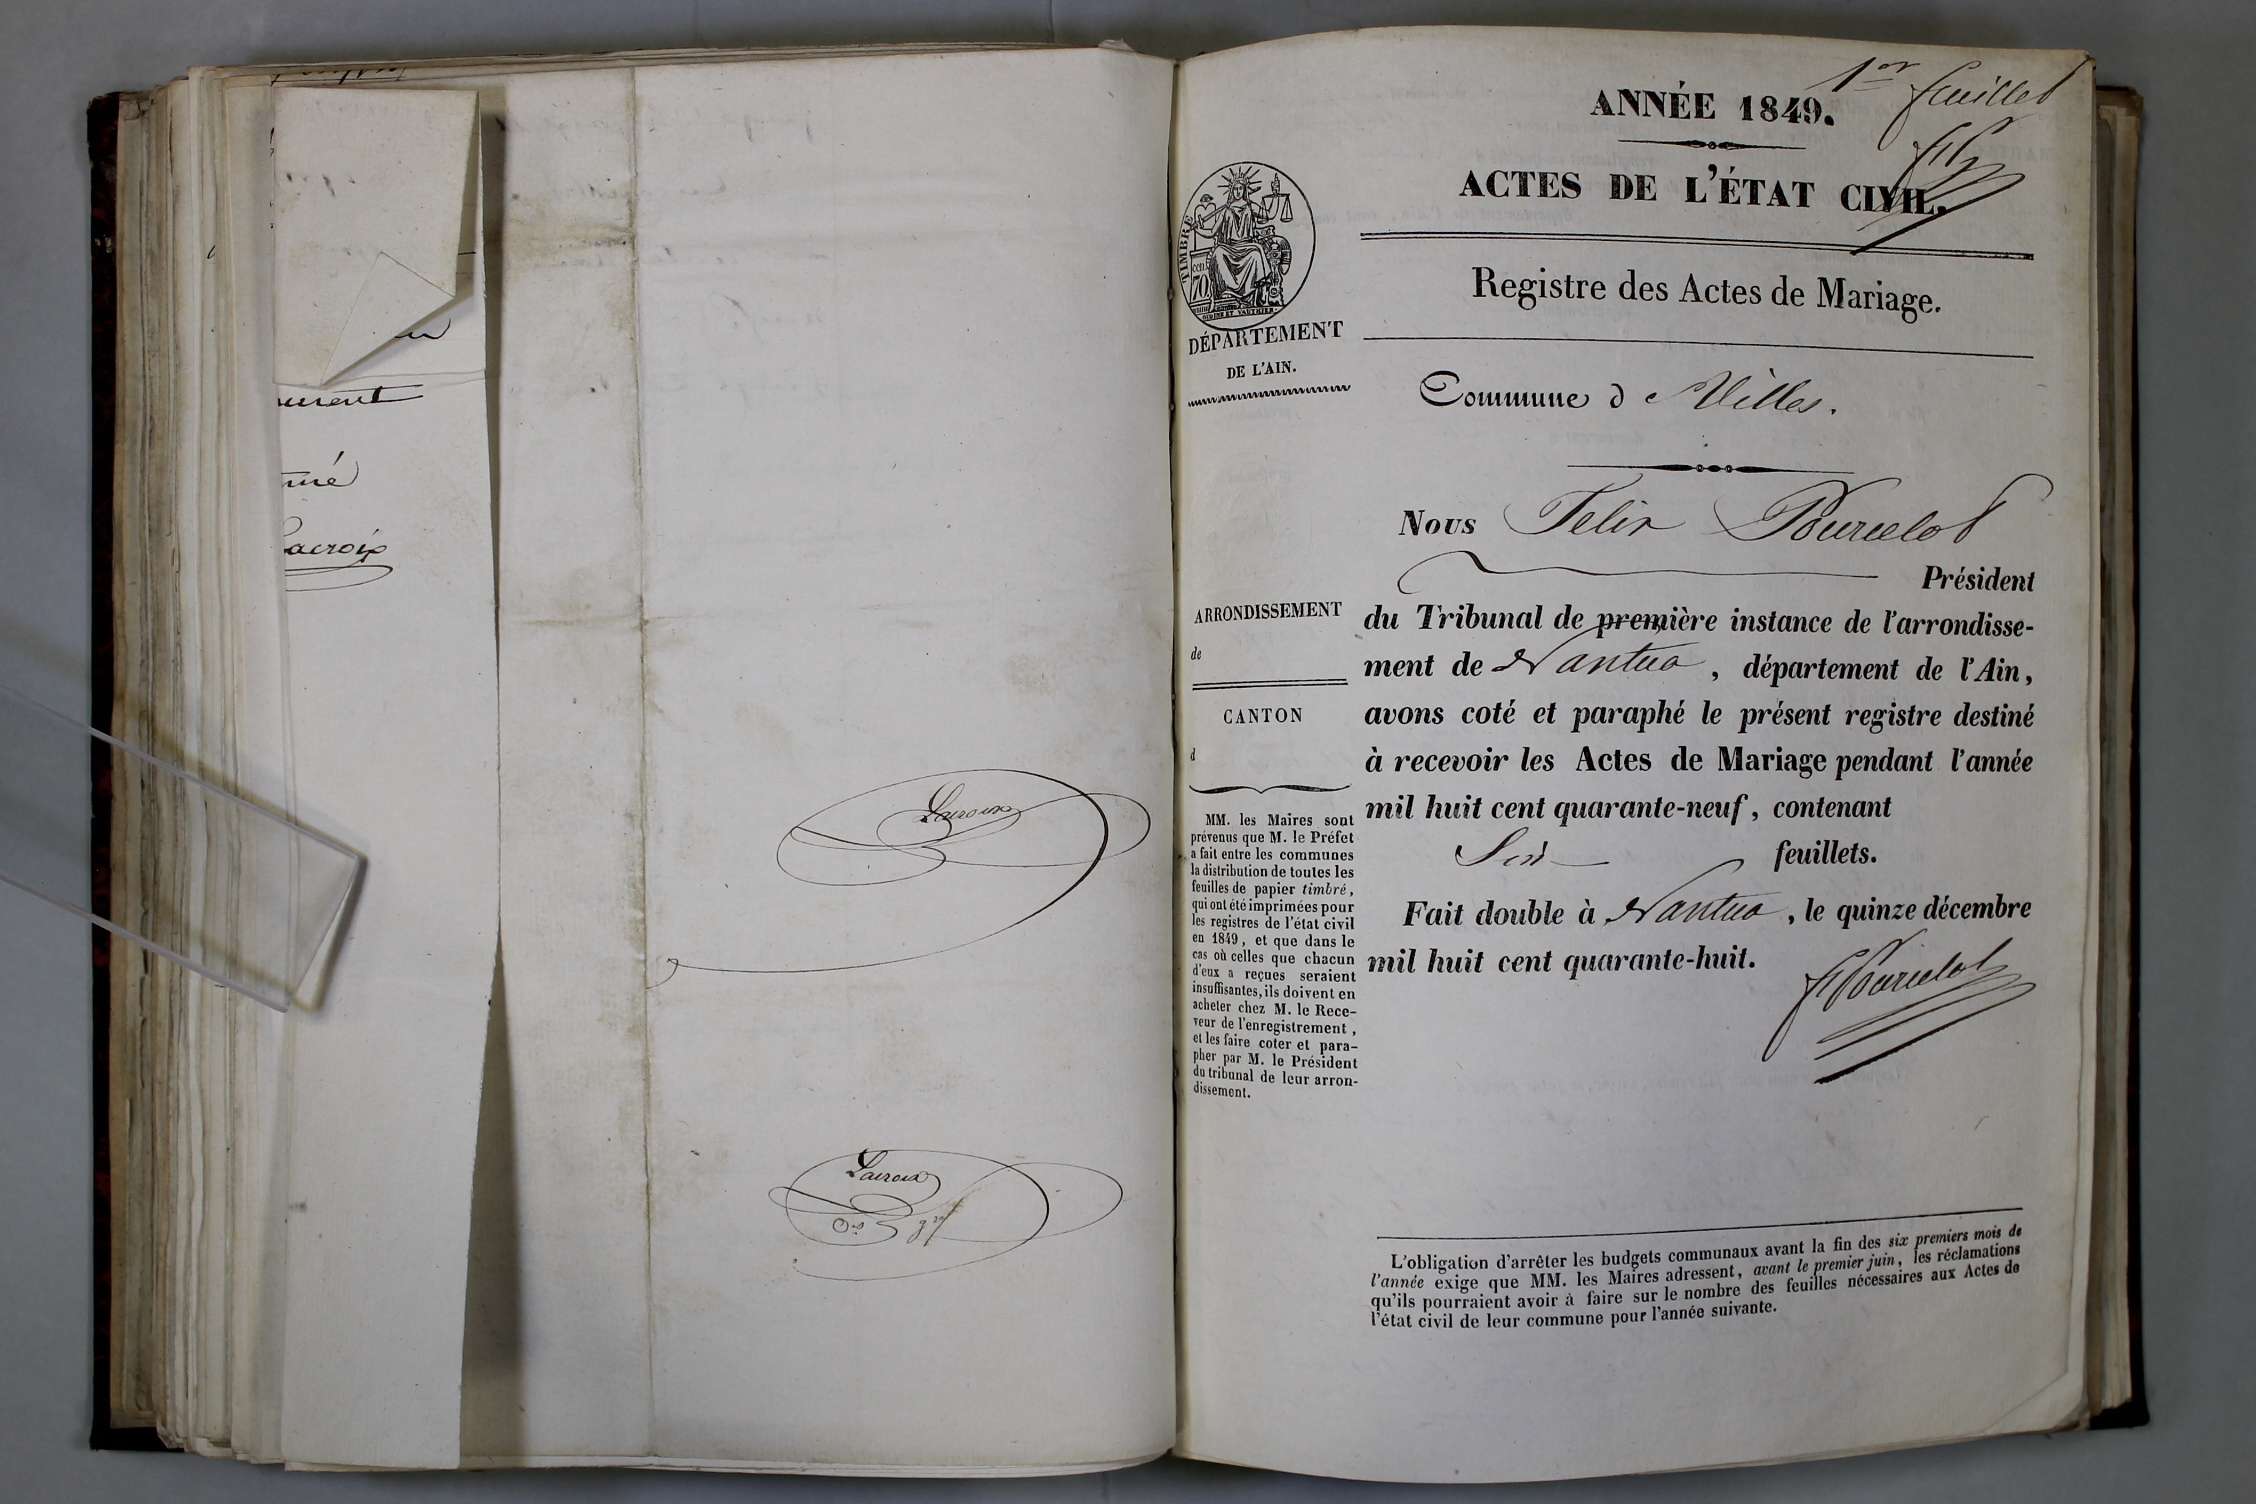 Lacroix
Lacroix
Lacroix
1er feuillet
ANNÉE 1849.
ACTES DE L'ÉTAT CIVIL.
Registre des Actes de Mariage.
TIMBRE
70
DÉPARTEMENT
DE L'AIN.
Commune d Villes.
Nous Felix Bourcelot
Président
du Tribunal de première instance de l'arrondisse-
ment de Nantua, département de l'Ain,
avons coté et paraphé le présent registre destiné
à recevoir les Actes de Mariage pendant l'année
mil huit cent quarante-neuf, contenant
Six feuillets.
Fait double à Nantua, le quinze décembre
mil huit cent quarante-huit.
ARRONDISSEMENT
de
CANTON
d
MM. les Maires sont
prévenus que M. le Préfet
a fait entre les communes
la distribution de toutes les
feuilles de papier timbré,
qui ont été imprimées pour
les registres de l'état civil
en 1849, et que dans le
cas où celles que chacun
d'eux a reçues seraient
insuffisantes, ils doivent en
acheter chez M. le Rece-
veur de l'enregistrement,
et les faire coter et para-
pher par M. le Président
du tribunal de leur arron-
dissement.
L'obligation d'arrêter les budgets communaux avant la fin des six premiers mois de
l'année exige que MM. les Maires adressent, avant le premier juin, les réclamations
qu'ils pourraient avoir à faire sur le nombre des feuilles nécessaires aux Actes de
l'état civil de leur commune pour l'année suivante.